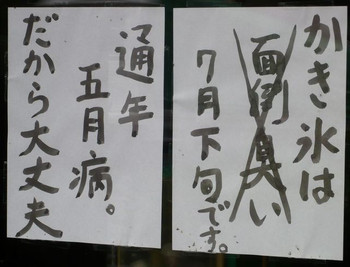 かき氷は
面倒臭い
7月下旬です。
通年
五月病。
だから大丈夫